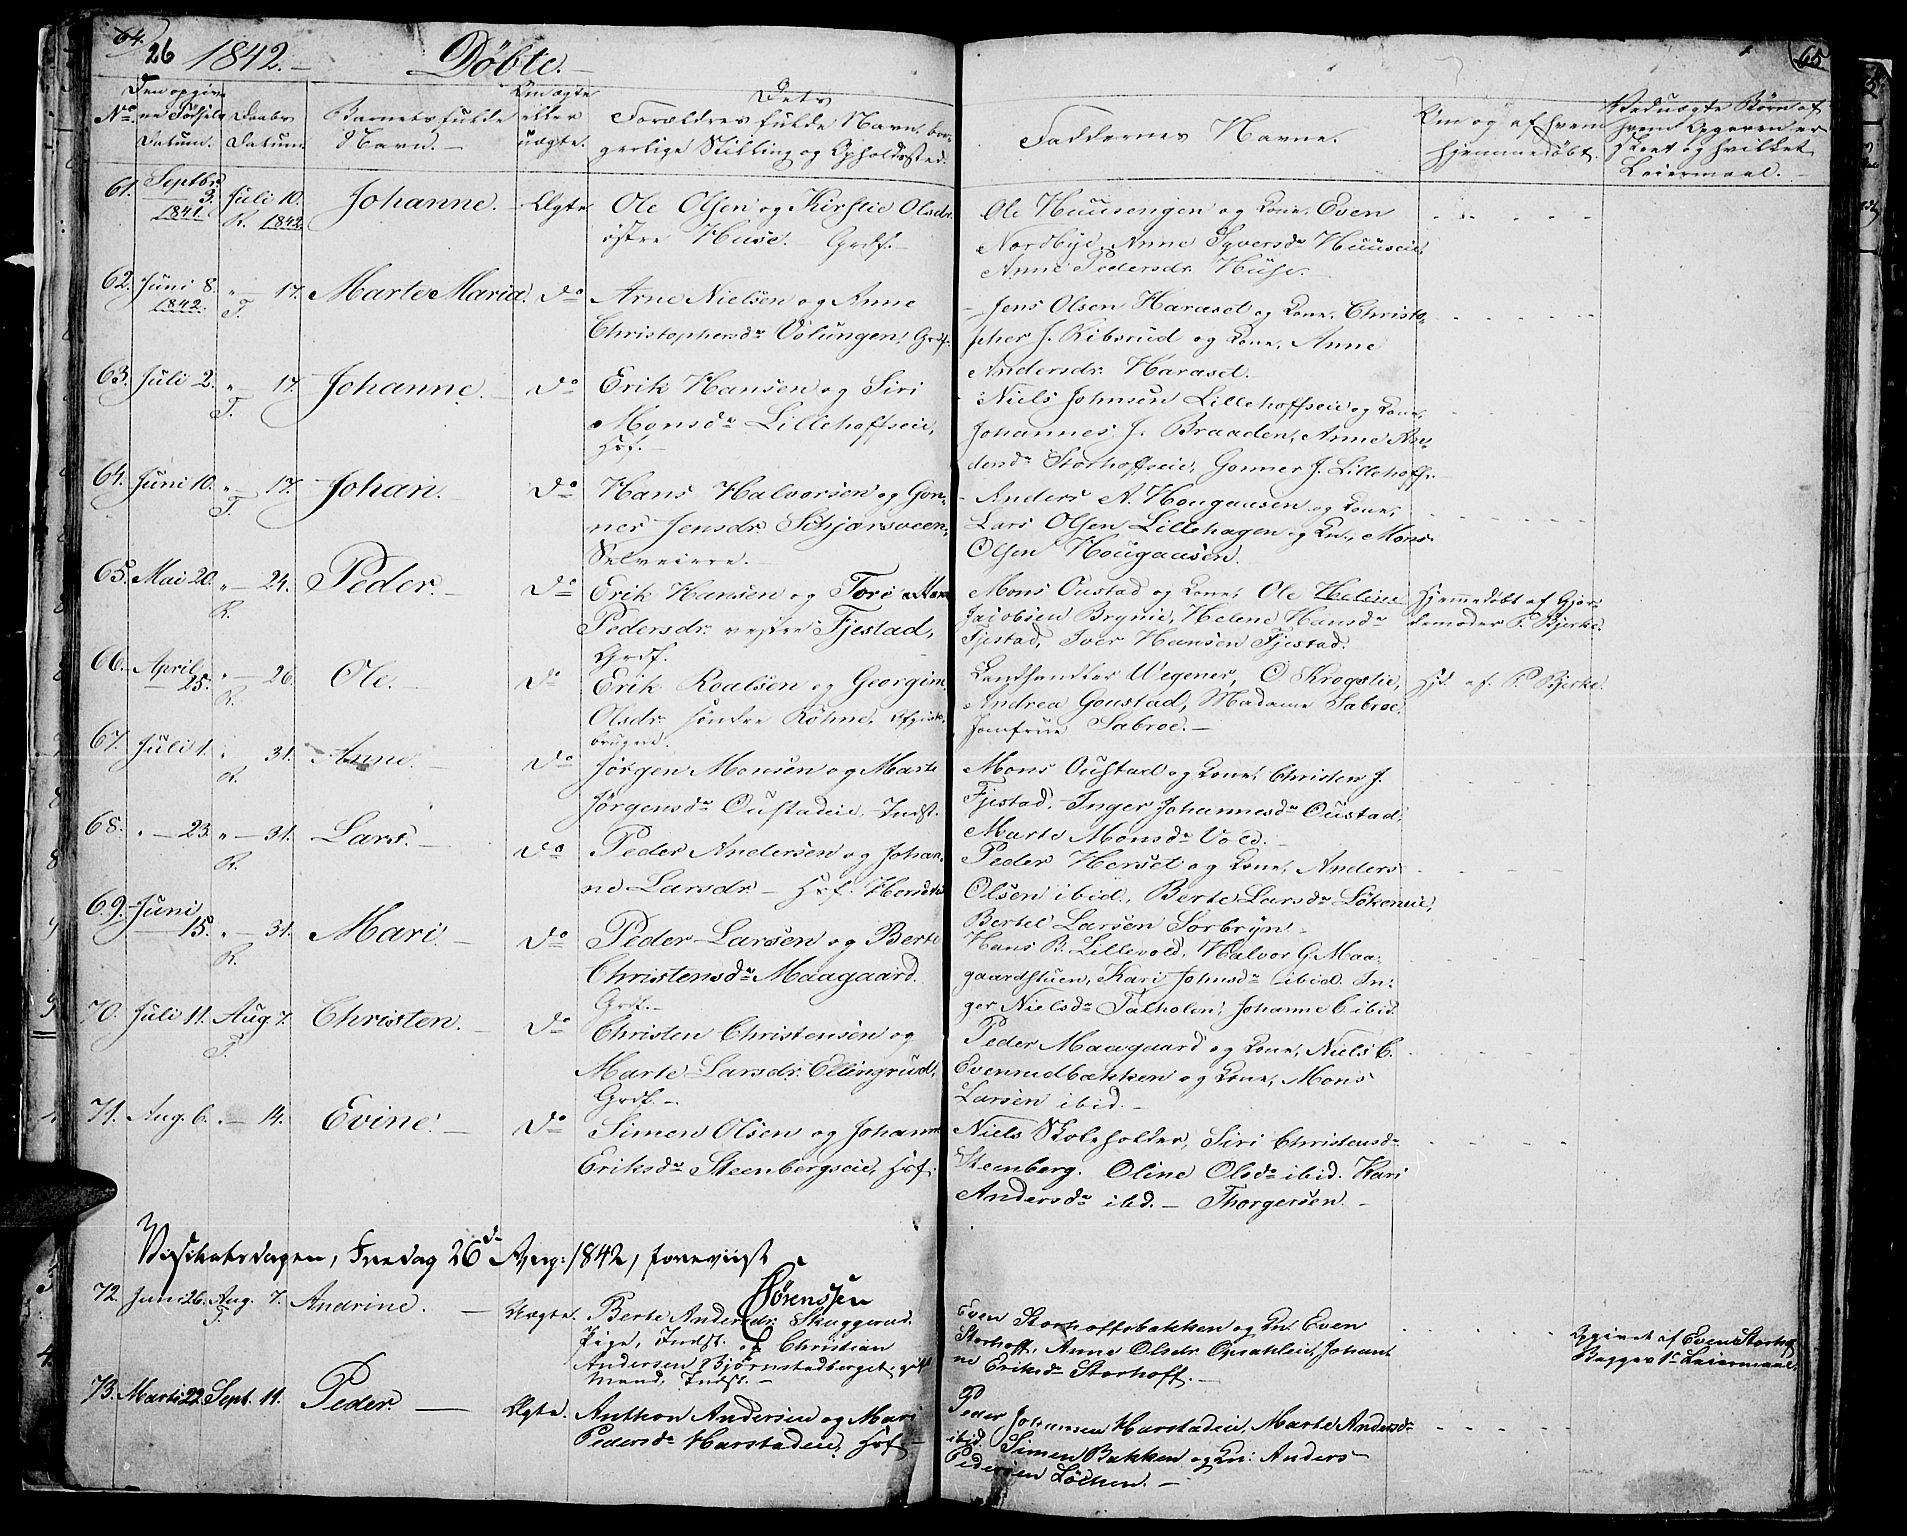 64. 26 1842. — Døbte. — 65
No. Den opgivne Fødsels Datum. Daabs Datum. Barnets fulde Navn. — Om ægte eller uægte. Dets Forældres fulde Navn, borgerlige Stilling og Opholdssted. Faddernes Navne. Om og af hvem hjemmedøbt. Ved uægte Børn af hvem Opgaven er skeet og hvilket Leiermaal. —
61. Septbr. 3. 1841. Juli 10. R. 1842. Johanne. Ægte Ole Olsen og Kirstie Olsdr.
østre Huse. Grdf. —
Ole Huusengen og Kone, Even
Nordbye, Anne Syversdr Huuseie,
Anne Pedersdr. Huse. —
62. Juni 8. 1842. " — 17. T. Marte Maria. do Arne Nielsen og Anne
Christophersdr Volungen, Grdf.
Jens Olsen Haraset og Kone, Christo-
pher J. Kibsrud og Kone, Anne
Andersdr. Haraset.
63. Juli 2. " — 17. T. Johanne. — do Erik Hansen og Siri
Monsdr Lillehoffseie,
Hsf. —
Niels Johnsen Lillehoffseie og Kone,
Johannes J. Braaden, Anne
Storhoffseie, Gonner J. Lillehoff.
64. Juni 10. " — 17. T. Johan. — do Hans Halvorsen og Gon-
ner Jensdr. Schjærsveen,
Selveiere. —
Anders A. Hougaasen og Kone,
Lars Olsen Lillehagen og Kn., Mons
Olsen Hougaasen.
65. Mai 20. " — 24. R. Peder. — do Erik Hansen og Tore
Pedersdr. vestre Fjestad,
Grdf.
Mons Oustad og Kone, Ole Helene
Jacobsen Brynie, Helene Hansdr
Fjestad, Iver Hansen Fjestad.
Hjemmedøbt af Gjor-
demoder P. Bjerke.
66. April 25. " — 26. R. Ole. — do Erik Roalsen og Georgine
Olsdr. søndre Köhne,
brugere.
Landhandler Wegener, O Krogstie,
Andrea Goustad, Madame Sabroe,
Jomfrue Sabroe. —
Hjd. af P. Bjerke.
67. Juli 1. " 31. R. Anne. — do Jørgen Monsen og Marte
Jørgensdr Oustadeie, Indst.
Mons Oustad og Kone, Christen J.
Fjestad, Inger Johannesdr Oustad,
Marte Monsdr Vold. —
68. " — 23. " — 31. R. Lars. — do Peder Andersen og Johan-
ne Larsdr. — Hsf.
Peder Herset og Kone, Anders
Olsen ibid., Berte Larsdr Løkeneie,
Bertel Larsen Sorbryn.
69. Juni 15. " — 31. R. Mari. — do Peder Larsen og Berte
Christensdr Maagaard.
Grdf. —
Hans B. Lillevold, Halvor G. Maa-
gaardstuen, Kari Johnsdr ibid. In-
ger Nielsdr Talholen, Johanne C. ibid.
70. Juli 11. Aug. 7. T. Christen. — do Christen Christensen og
Marte Larsdr. Ellingrud,
Grdf. —
Peder Maagaard og Kone, Niels C.
Evenrudbækken og Kone, Mons
Larsen ibid. —
71. Aug. 6. " — 14. Evine. — do Simen Olsen og Johanne
Eriksdr Steenbergseie, Hsf.
Niels Skoleholder, Siri Christensdr
Steenberg. Oline Olsdr ibid. Kari
Andersdr ibid. — Thorgersen. —
Visitatsdagen, Fredag 26de Aug: 1842, foreviist
Sørenssen
72. Juni 26. Aug. 7. T. Andrine. — Uægte. Berte Andersdr. Skuggerud.
Pige, Indst. og Christian
Andersen Bjørnstadberget, gift
Mand, Indst. —
Even Storhoffsbakken og Kn. Even
Storhoff, Anne Olsdr. Opsahleie, Johan-
ne Eriksdr Storhoff. —
Opgivet af Even Storhoff
Begges 1ste Leiermaal.
73. Marts 22. Sept. 11. Peder. — Ægte. Anthon Andersen og Mari
Pedersdr Harstadeie, Hsf —
Peder Johansen Harstadeie, Marte Andersdr
ibid. Simen Bakken og Kn: Anders
Pedersen Løcken. —